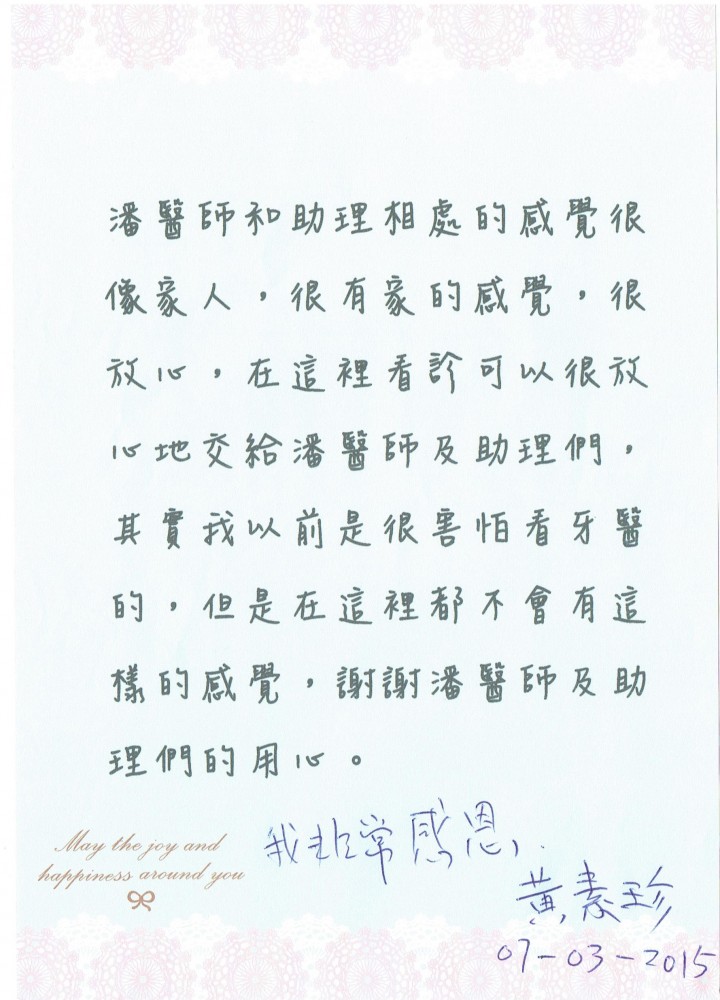 潘醫師和助理相處的感覺很
像家人，很有家的感覺，很
放心，在這裡看診可以很放
心地交給潘醫師及助理們，
其實我以前是很害怕看牙醫
的，但是在這裡都不會有這
樣的感覺，謝謝潘醫師及助
理們的用心。
May the joy and
happiness around you
我非常感恩，
黃素珍
07-03-2015